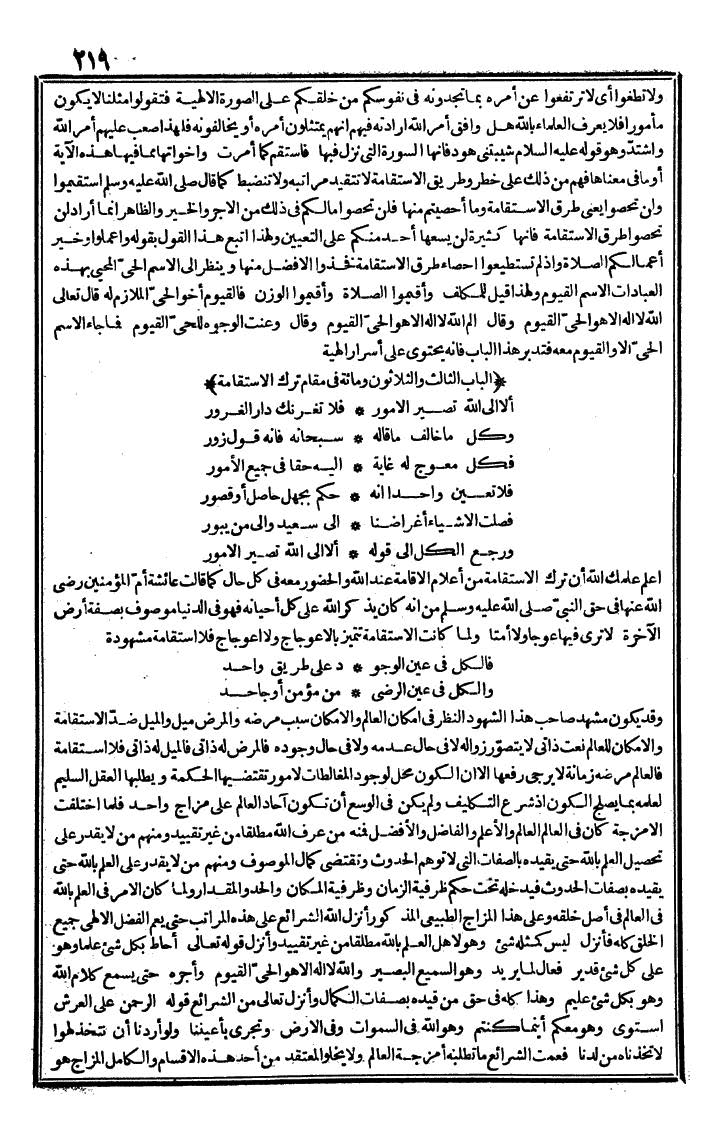 ٢١٩
ولا تطغوا أى لا ترتفعوا عن أمره بما تجدونه فى نفوسكم من خلقكم على الصورة الالهية فتقولوا مثلنا لا يكون
مأمورا فلا يعرف العلماء بالله هل وافق أمر الله ارادته فيهم انهم يمتثلون أمره أو يخالفونه فلهذا صعب عليهم أمر الله
واشتد وهو قوله عليه السلام شيبتنى هود فانها السورة التى نزل فيها فاستقم كما أمرت واخواتها مما فيها هذه الآية
أو ما فى معناها فهم من ذلك على خطر وطريق الاستقامة لا تتقيد مراتبه ولا تنضبط كما قال صلى الله عليه وسلم استقيموا
ولن تحصوا يعنى طرق الاستقامة وما أحصيتم منها فلن تحصوا مالكم فى ذلك من الاجر والخير والظاهر انما أراد لن
تحصوا طرق الاستقامة فانها كثيرة لن يسعها أحد منكم على التعيين ولهذا اتبع هذا القول بقوله واعملوا وخير
أعمالكم الصلاة واذ لم تستطيعوا احصاء طرق الاستقامة فخذوا الافضل منها وينظر الى الاسم الحىّ المحيى بهذه
العبادات الاسم القيوم ولهذا قيل للمكلف وأقيموا الصلاة وأقيموا الوزن فالقيوم أخو الحىّ الملازم له قال تعالى
الله لا اله الا هو الحىّ القيوم وقال الم الله لا اله الا هو الحىّ القيوم وقال وعنت الوجوه للحى القيوم فما جاء الاسم
الحىّ الا والقيوم معه فتدبر هذا الباب فانه يحتوى على أسرار الهية
﴿الباب الثالث والثلاثون ومائة فى مقام ترك الاستقامة﴾
ألا الى الله تصير الامور * فلا تغرنك دار الغرور
وكل ما خالف ما قاله * سبحانه فانه قول زور
فكل معوج له غاية * اليه حقا فى جميع الأمور
فلا تعين واحدا انه * حكم بجهل حاصل أو قصور
فصلت الاشياء أغراضنا * الى سعيد والى من يبور
ورجع الكل الى قوله * ألا الى الله تصير الامور
اعلم علمك الله أن ترك الاستقامة من أعلام الاقامة عند الله والحضور معه فى كل حال كما قالت عائشة أم المؤمنين رضى
الله عنها فى حق النبىّ صلى الله عليه وسلم من انه كان يذكر الله على كل أحيانه فهو فى الدنيا موصوف بصفة أرض
الآخرة لا ترى فيها عوجا ولا أمتا ولما كانت الاستقامة تتميز بالاعوجاج ولا اعوجاج فلا استقامة مشهودة
فالكل فى عين الوجو * د على طريق واحد
والكل فى عين الرضى * من مؤمن أو جاحد
وقد يكون مشهد صاحب هذا الشهود النظر فى امكان العالم والامكان سبب مرضه والمرض ميل والميل ضدّ الاستقامة
والامكان للعالم نعت ذاتى لا يتصوّر زواله لا فى حال عدمه ولا فى حال وجوده فالمرض له ذاتى فالميل له ذاتى فلا استقامة
فالعالم مرضه زمانة لا يرجى رفعها الا ان الكون محل لوجود المغالطات لامور تقتضيها الحكمة ويطلبها العقل السليم
لعلمه بما يصلح الكون اذ شرع التكليف ولم يكن فى الوسع أن تكون آحاد العالم على مزاج واحد فلما اختلفت
الامزجة كان فى العالم العالم والأعلم والفاضل والأفضل فمنه من عرف الله مطلقا من غير تقييد ومنهم من لا يقدر على
تحصيل العلم بالله حتى يقيده بالصفات التى لا توهم الحدوث وتقتضى كمال الموصوف ومنهم من لا يقدر على العلم بالله حتى
يقيده بصفات الحدوث فيدخله تحت حكم ظرفية الزمان وظرفية المكان والحد والمقدار ولما كان الامر فى العلم بالله
فى العالم فى أصل خلقه وعلى هذا المزاج الطبيعى المذكور أنزل الله الشرائع على هذه المراتب حتى يعم الفضل الالهى جميع
الخلق كله فأنزل ليس كمثله شئ وهو لاهل العلم بالله مطلقا من غير تقييد وأنزل قوله تعالى أحاط بكل شئ علما وهو
على كل شئ قدير فعال لما يريد وهو السميع البصير والله لا اله الا هو الحىّ القيوم وأجره حتى يسمع كلام الله
وهو بكل شئ عليم وهذا كله فى حق من قيده بصفات الكمال وأنزل تعالى من الشرائع قوله الرحمن على العرش
استوى وهو معكم أينما كنتم وهو الله فى السموات وفى الارض وتجرى بأعيننا ولو أردنا أن نتخذ لهوا
لاتخذناه من لدنا فعمت الشرائع ما تطلبه أمزجة العالم ولا يخلو المعتقد من أحد هذه الاقسام والكامل المزاج هو